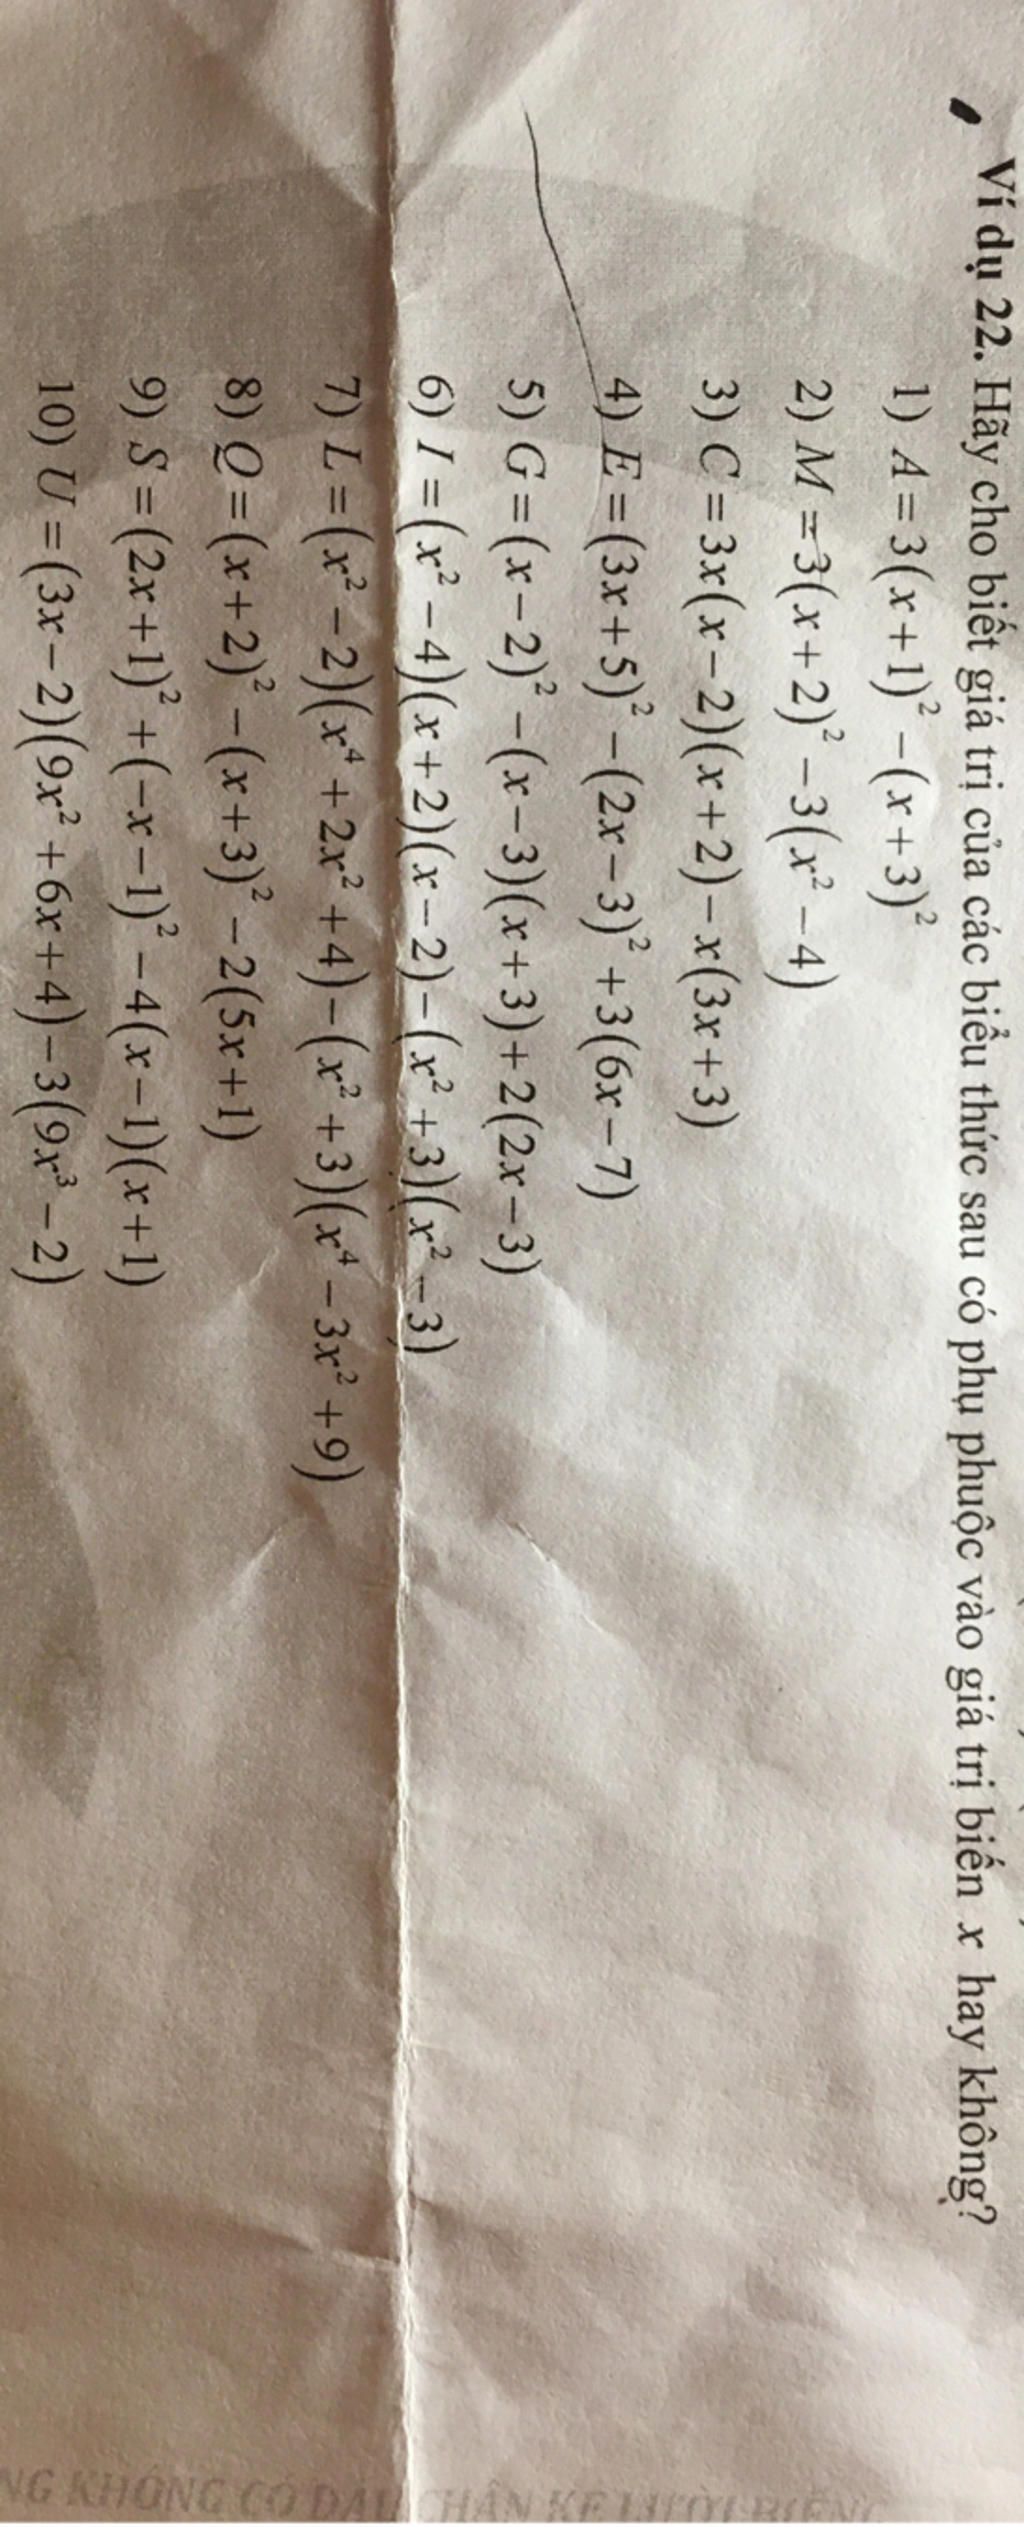 Ví dụ 22. Hãy cho biết giá trị của các biểu thức sau có phụ phuộc vào giá trị biến x hay không?
1) A = 3(x+1)² − (x+3)²
2) M = 3(x+2)² − 3(x² − 4)
3) C = 3x(x−2)(x+2) − x(3x+3)
4) E = (3x+5)² − (2x−3)² + 3(6x−7)
5) G = (x−2)² − (x−3)(x+3) + 2(2x−3)
6) I = (x² − 4)(x+2)(x−2) − (x² + 3)(x² − 3)
7) L = (x² − 2)(x⁴ + 2x² + 4) − (x² + 3)(x⁴ − 3x² + 9)
8) Q = (x+2)² − (x+3)² − 2(5x+1)
9) S = (2x+1)² + (−x−1)² − 4(x−1)(x+1)
10) U = (3x−2)(9x² + 6x + 4) − 3(9x³ − 2)
KHÔNG CÓ DẤU CHÂN KẺ LƯỜI BIẾNG